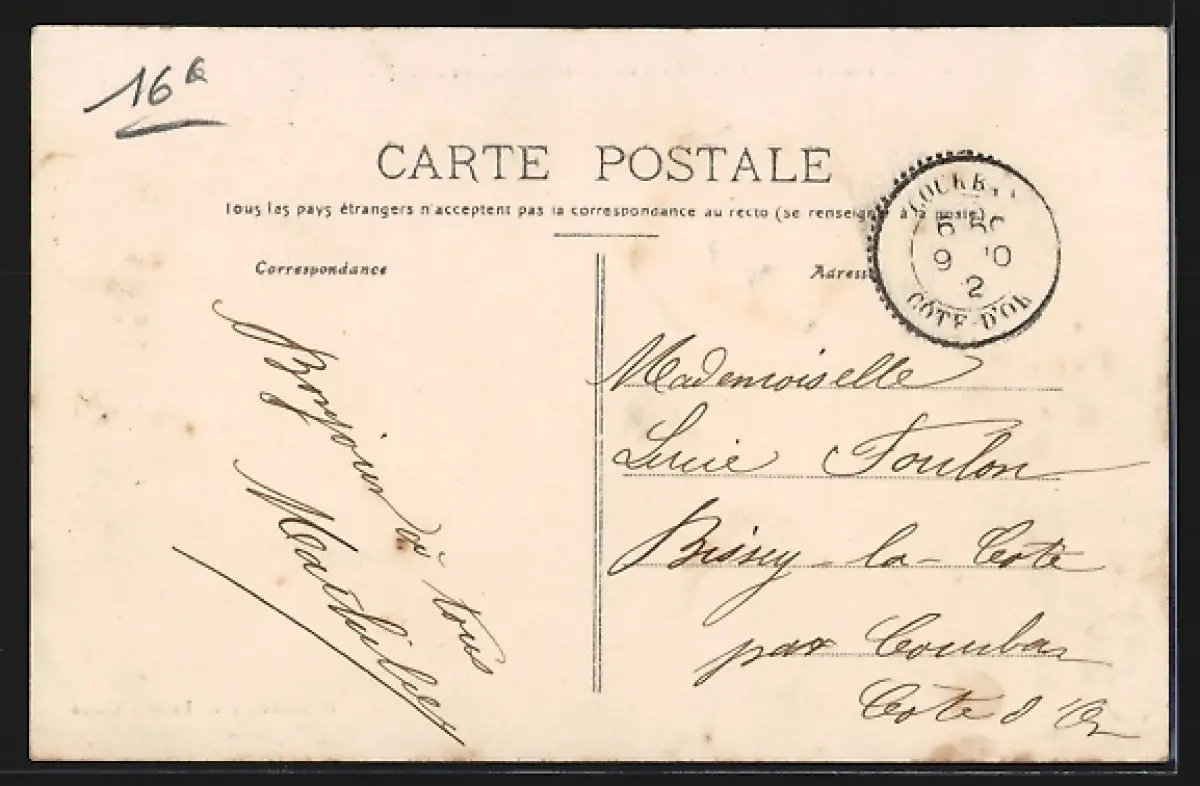 16€
CARTE POSTALE
Tous les pays étrangers n'acceptent pas la correspondance au recto (se renseigner à la poste)
Correspondance
Adresse
CÔTE-D'OR
Bonjour à tous
Mademoiselle
Lucie Foulon
Bissey-la-Cote
par
Cote d'Or